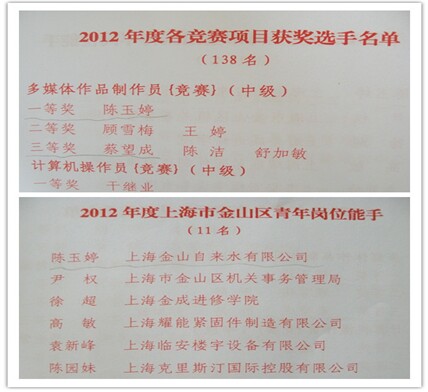 2012 年度各竞赛项目获奖选手名单
(138 名)
多媒体作品制作员{竞赛}(中级)
一等奖 陈玉婷
二等奖 顾雪梅 王 婷
三等奖 蔡望成 陈 洁 舒加敏
计算机操作员{竞赛}(中级)
一等奖 干继业
2012 年度上海市金山区青年岗位能手
(11 名)
陈玉婷 上海金山自来水有限公司
尹 权 上海市金山区机关事务管理局
徐 超 上海金成进修学院
高 敏 上海耀能紧固件制造有限公司
袁新峰 上海临安楼宇设备有限公司
陈园妹 上海克里斯汀国际控股有限公司